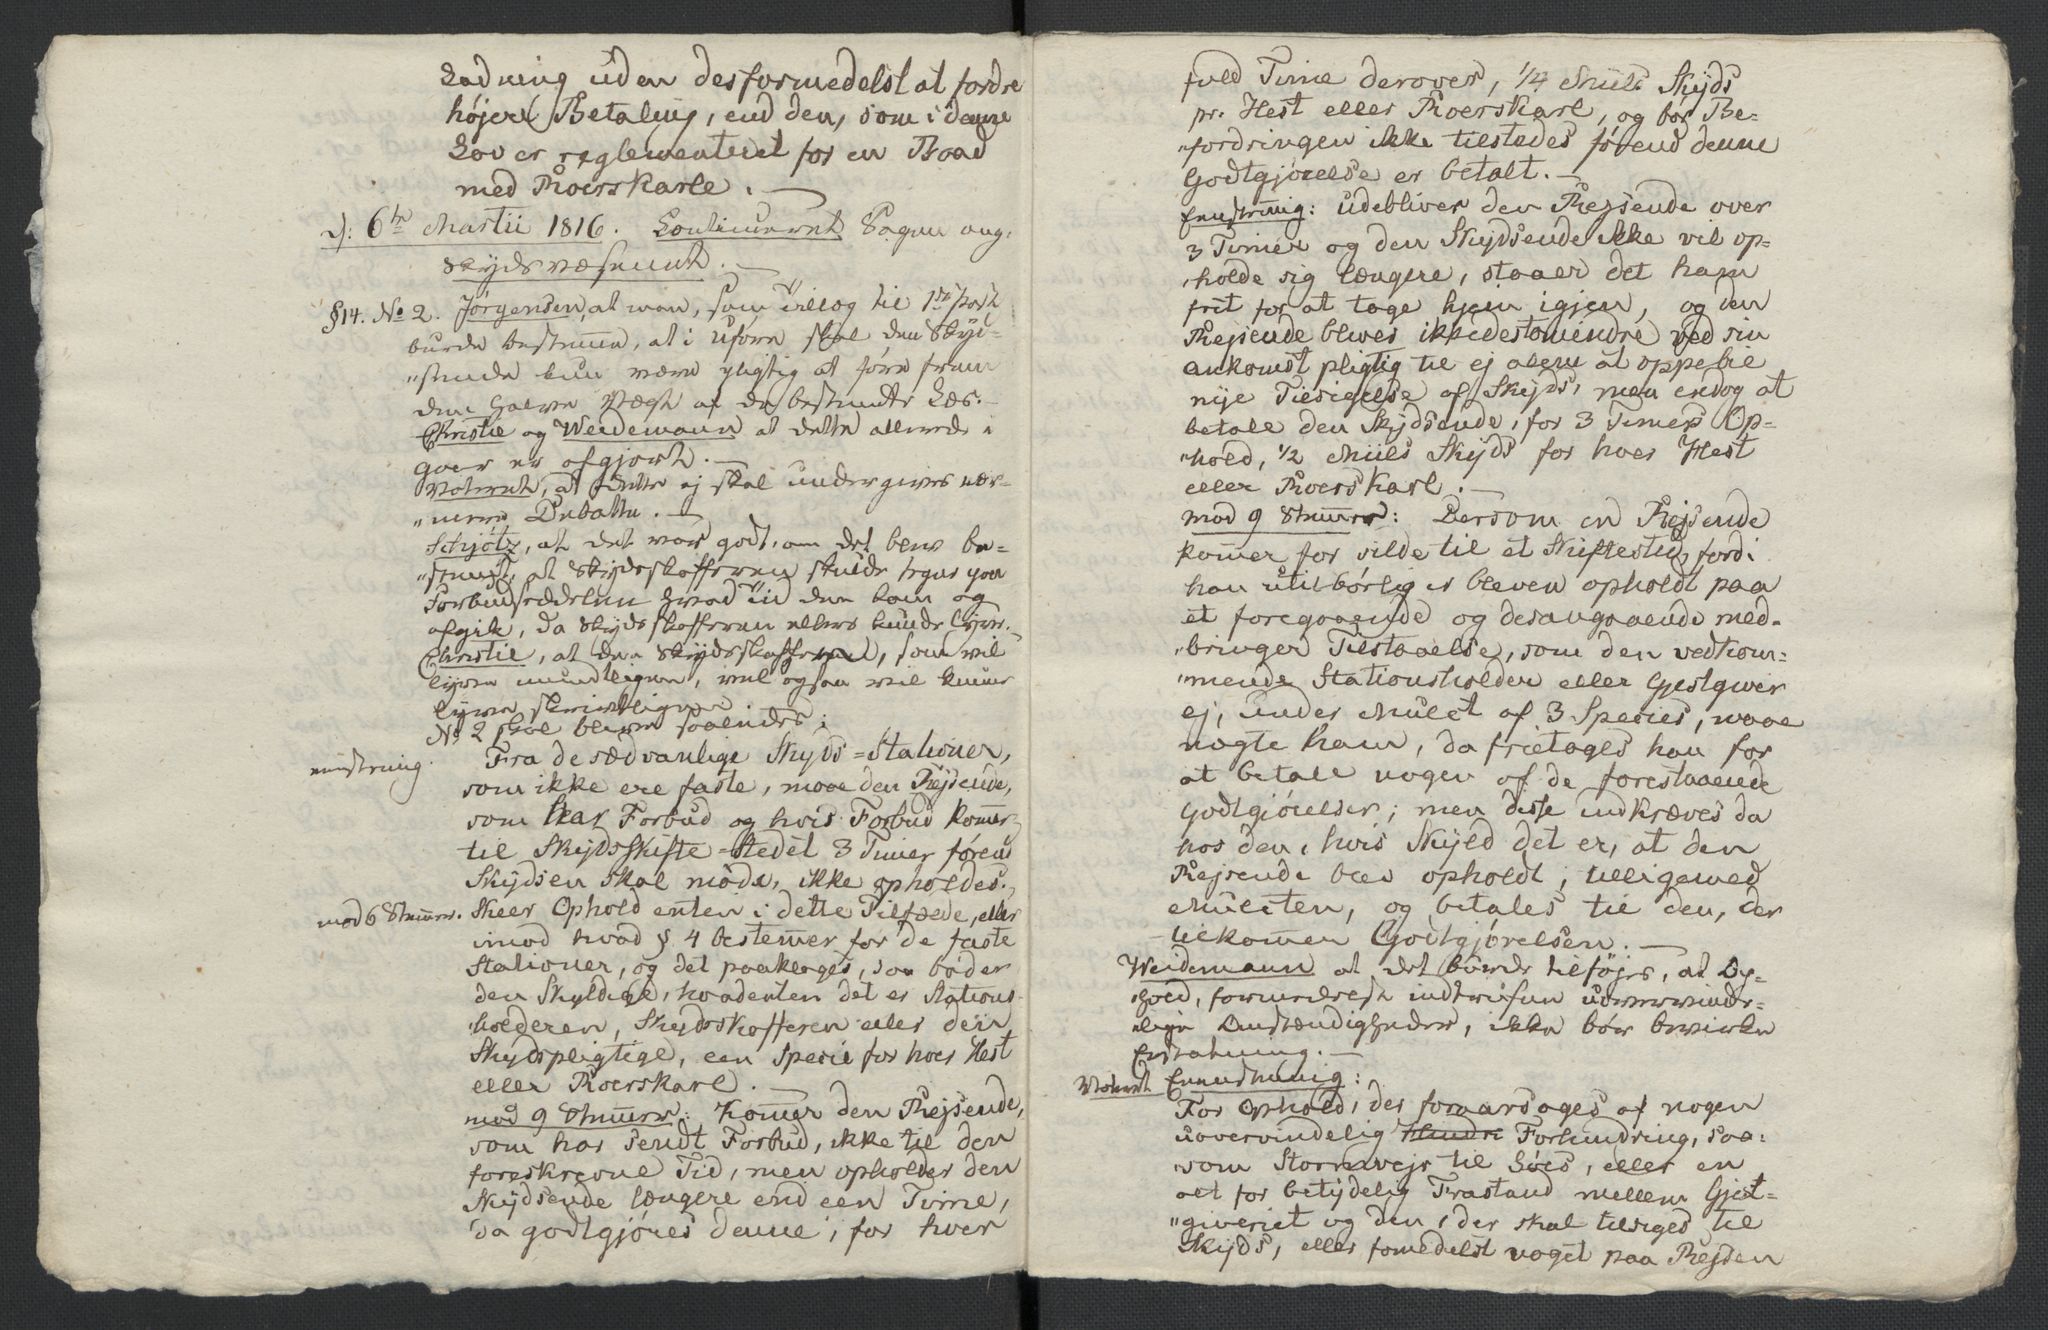 Ladning uden desformedelst at fordre
højere Betaling, end den, som i denne
Lov er reglementeret for en Baad
med Roerskarle.
d: 6te Martii 1816. Continueret Sagen ang:
Skydsvæsenet.
§14. No 2. Jørgensen, at man, som Tillæg til 1ste Post
burde bestemme, at i Uføre skal den Skyd-
"sende kun være pligtig at føre frem
den halve Vægt af de bestemte Læs.
Christie og Weidemann at dette allerede i
gaar er afgjort.
Voteret, at dette ej skal undergives nær-
"mere Debatte.
Schjøtz, at det var godt, om det blev be-
"stemt, at Skydsskafferen skulde tegne paa
Forbudssedelen hvad Tid den kom og
afgik, da Skydsskafferen ellers kunde lyve.
Christie, at den Skydsskaffer, som vil
lyve mundtligen, vel ogsaa vil kunne
lyve skriftligen.
No 2 skal blive saalydes:
eenstemig.
Fra de sædvanlige Skyds-Stationer,
som ikke ere faste, maae den Rejsende,
som har Forbud og hvis Forbud kommer
til Skydsskifte-Stedet 3 Timer førend
Skydsen skal møde, ikke opholdes.
mod 6 Stemmer. Skeer Ophold enten i dette Tilfælde, eller
imod hvad § 4 bestemmer for de faste
Stationer, og det paaklages, saa bøder
den Skyldige, hvadenten det er Stations-
holderen, Skydsskafferen eller den
Skydspligtige, een Specie for hver Hest
eller Roerskarl.
mod 9 Stemmer: Kommer den Rejsende,
som har sendt Forbud, ikke til den
foreskrevne Tid, men opholder den
Skydsende længere end een Time,
da godtgjøres denne, for hver
fuld Time derover, 1/4 Miils Skyds
pr. Hest eller Roerskarl, og bør Be-
"fordringen ikke tilstedes førend denne
Godtgjørelse er betalt.
Eenstemig: udebliver den Rejsende over
3 Timer og den Skydsende ikke vil op-
"holde sig længere, staaer det ham
frit for at tage hjem igjen, og den
Rejsende bliver ikkedestomindre ved sin
ankomst pligtig til ej alene at oppebie
nye Tilsigelse af Skyds, men endog at
betale den Skydsende, for 3 Timers Op-
"hold, 1/2 Miils Skyds for hver Hest
eller Roerskarl.
mod 9 Stemmer: Dersom en Rejsende
kommer for silde til et Skiftested, fordi
han utilbørlig er bleven opholdt paa
et foregaaende og desangaaende med-
"bringer Tilstaaelse, som den vedkom-
"mende Stationsholder eller Gjestgiver
ej, under Mulct af 3 Species, maae
nægte ham, da fritages han for
at betale nogen af de forestaaende
Godtgjørelser; men disse indkræves da
hos den, hvis Skyld det er, at den
Rejsende blev opholdt, tilligemed
Mulcten, og betales til den, der
tilkommer Godtgjørelsen.
Weidemann at det burde tilføjes, at Op-
"hold, formedelst indtrufne uovervinde-
"lige Omstændigheder, ikke bør bevirke
Erstatning.
Voteret Eenstemig:
For Ophold, der foraarsages af nogen
uovervindelig Hindre Forhindring, saa-
"som Stormvejr til Søes, eller en
alt for betydelig Frastand mellem Gjest-
"giveriet og den, der skal tilsiges til
Skyds, eller formedelst noget paa Rejsen